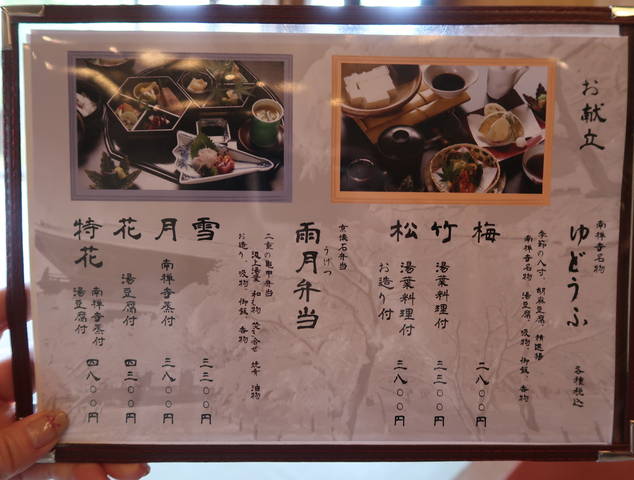 お献立
南禅寺名物
ゆどうふ
各種税込
季節の八寸、胡麻豆腐、精進揚
南禅寺名物、湯豆腐、吸物、御飯、香物
梅 二八〇〇円
竹 湯葉料理付 三三〇〇円
松 湯葉料理付 お造り付 三八〇〇円
京懐石弁当
うげつ
雨月弁当
二重の亀甲弁当
汲上湯葉 和え物 焚き合せ 焼肴 油物
お造り、吸物、御飯、香物
雪 三三〇〇円
月 南禅寺蒸付 三八〇〇円
花 湯豆腐付 四三〇〇円
特花 南禅寺蒸付 湯豆腐付 四八〇〇円